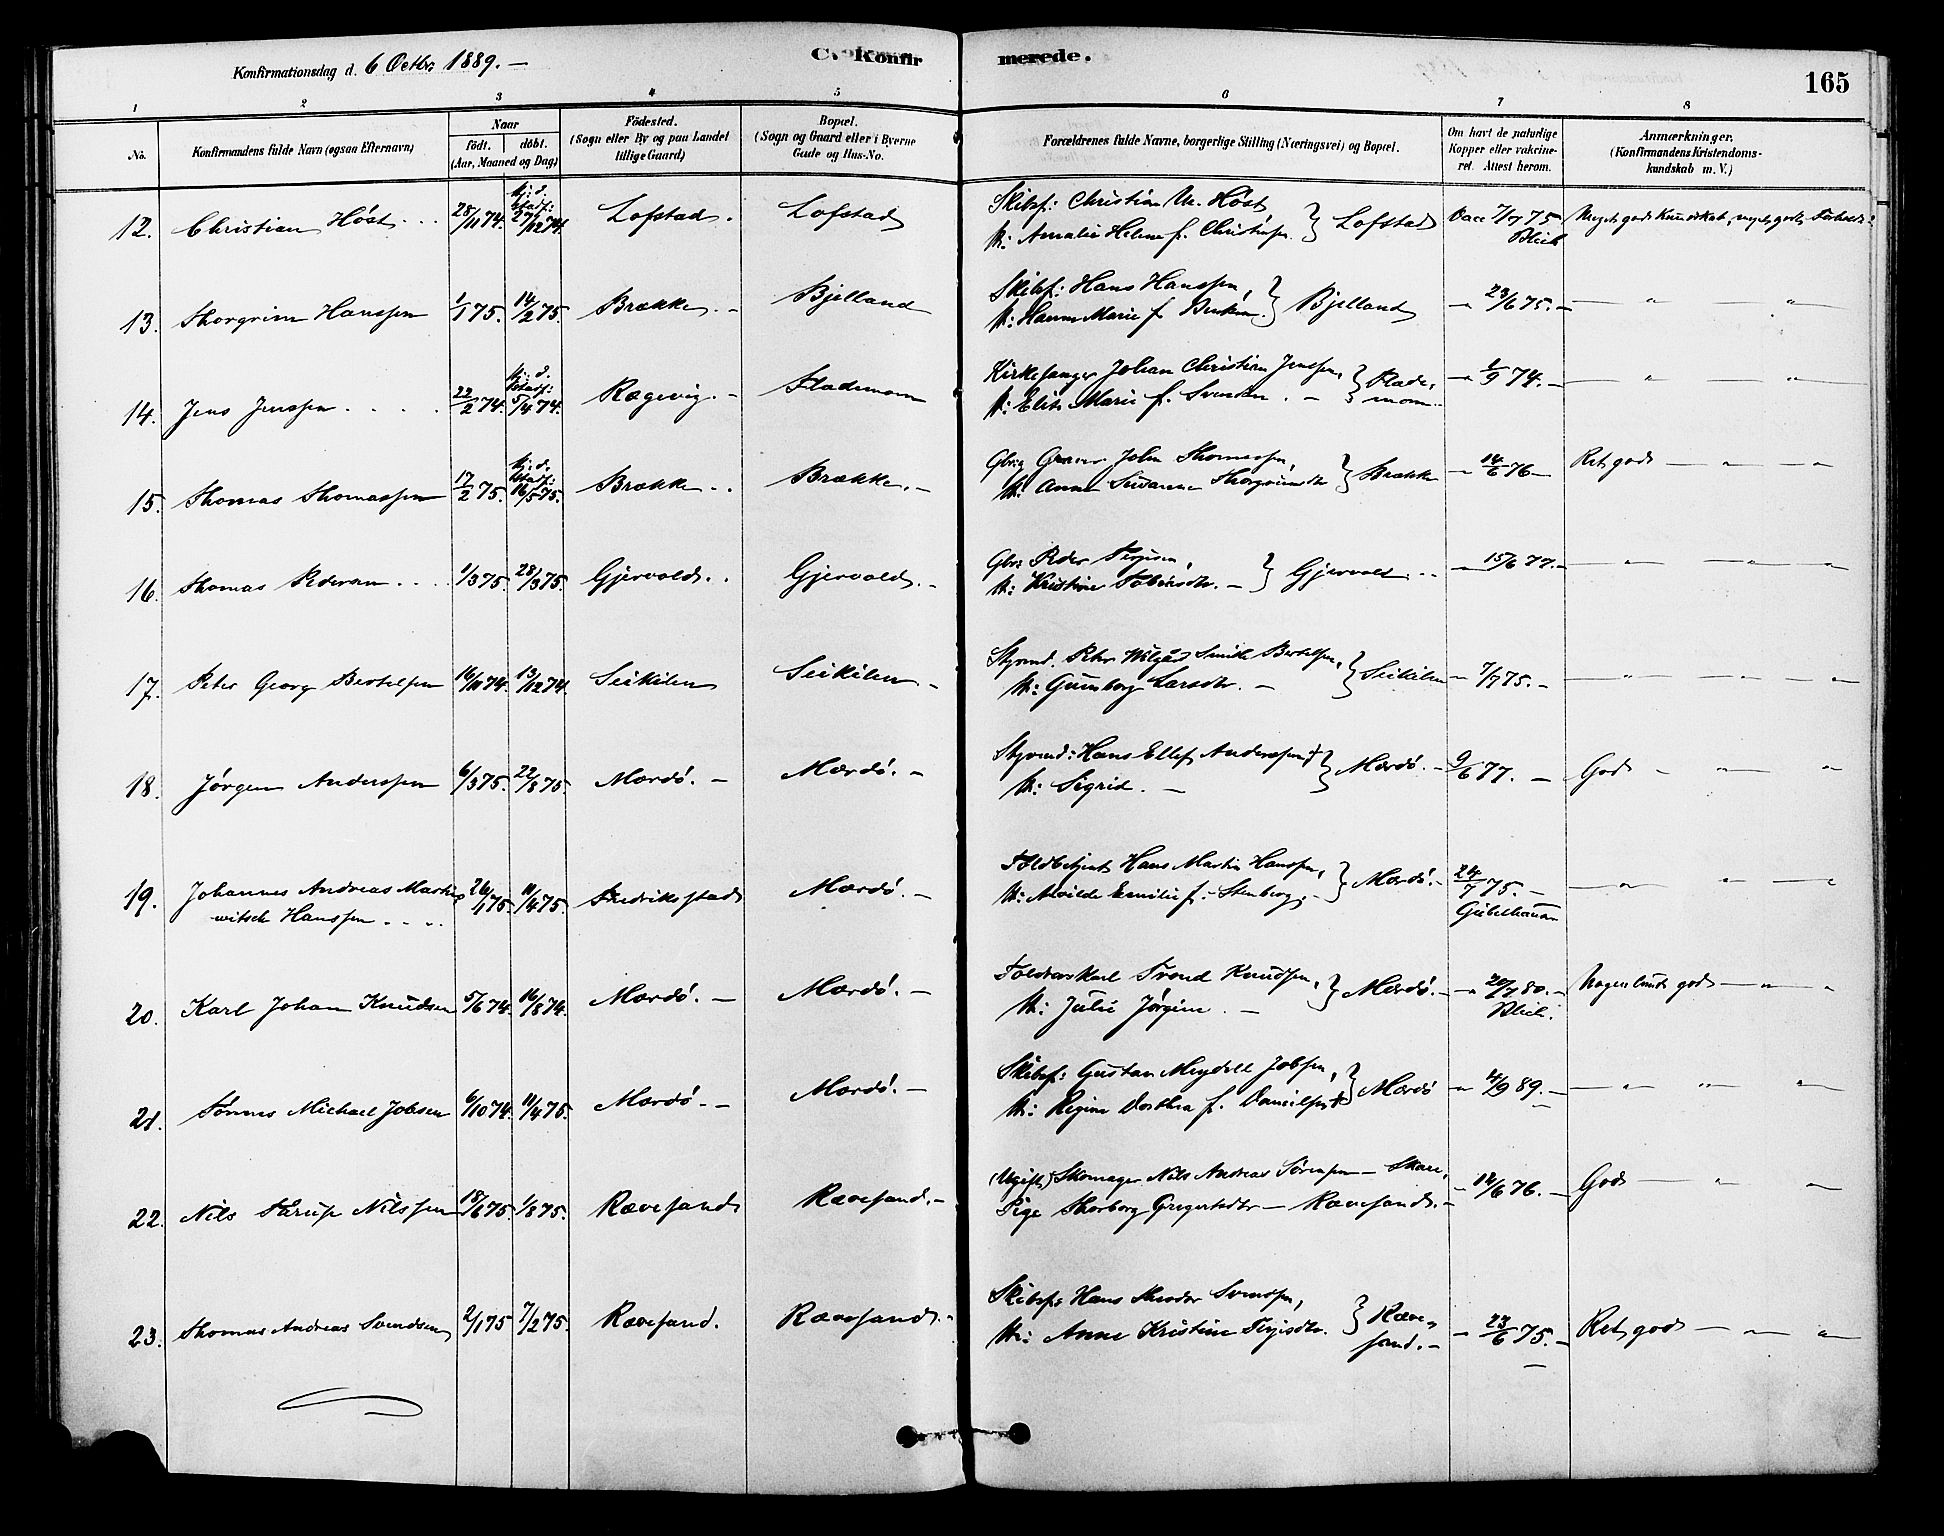 Konfirmationsdag d. 6 Octbr 1889. —
C. Konfirmerede.
165
1 2 3 4 5 6 7 8
No. Konfirmandens fulde Navn (ogsaa Efternavn)
Naar födt. döbt. (Aar, Maaned og Dag)
Födested. (Sogn eller By og paa Landet tillige Gaard)
Bopæl. (Sogn og Gaard eller i Byerne Gade og Hus-No.
Forældrenes fulde Navne, borgerlige Stilling (Næringsvei) og Bopæl.
Om havt de naturlige Kopper eller vakcineret. Attest herom.
Anmærkninger. (Konfirmandens Kristendomskundskab m. V.)
12. Christian Høst 28/11 74. 27/12 74. Lofstad. Lofstad
Skibsf: Christian M. Høst
H: Amalie Helene f. } Lofstad Vacc 7/7 75 Blich Meget god Kundskab, meget godt Forhold
13. Thorgrim Hanssen 1/1 75. 14/2 75. Brække. Bjelland
Skibsf: Hans Hanssen,
H: Hanne Marie f. } Bjelland — 23/6 75. —
14. Jens Jenssen 22/2 74. 5/4 74. Rægevig. —
Kirkesanger Johan Christian Jenssen,
H: Elise Marie f. Svendsen. — 1/9 74. —
15. Thomas Thomassen 17/2 75. 16/5 75. Brække. Brække. —
John Thomassen,
H: Anne Susanne Thorgrimsdtr } Brække — 14/6 76 — Ret god
16. Thomas Pedersen 1/3 75. 28/3 75. Gjervold. Gjervold. —
Gbr: Peder Terjesen,
H: Kristine Tobiasdtr. — } Gjervold — 15/6 77. —
17. Peter Georg Bertelsen 16/10 74. 13/12 74. Seikilen Seikilen. —
Styrmd. Peter Smith Bertelsen,
H: Gunborg Larsdtr. — } Seikilen — 7/7 75. —
18. Jørgen Anderssen 6/3 75. 22/8 75. Mærdö. — Mærdö. —
Styrmd: Hans Ellef Anderssen †
H: Sigrid. — } Mærdö. — 9/6 77. — God
19. Johannes Andreas Martin
witsch Hanssen 26/1 75. 11/4 75. Fredriksstad Mærdö. —
Toldbetjent Hans Martin Hanssen,
H: Alvilde Emilie f. Stenberg. } Mærdö. — 24/7 75. —
20. Karl Johan Knudsen 5/6 74. 16/8 74. Mærdö. — Mærdö. —
Trond Knudsen,
H: Julie Jørgine. — } Mærdö. — 20/7 80. — Blich. Nogenlunde god
21. Tønnes Michael Jobsen 6/10 74. 11/4 75. Mærdö. — Mærdö. —
Skibsf: Gustav Meydell Jobsen,
H: Regine Dorthea f. Danielsen † } Mærdö — 4/9 89. —
22. Nils Nilssen 18/6 75. 1/8 75. Rævesand Rævesand. —
(Ugift) Skomager Nils Andreas Sørensen —
Pige Thorborg Gregersdtr — Rævesand. — 14/6 76. — God
23. Thomas Andreas Svendsen 2/1 75 7/2 75. Rævesand. Rævesand. —
Skibsf: Hans Theodor Svendsen,
H: Anne Kristine Terjesdtr. } Rævesand. — 23/6 75. — Ret god